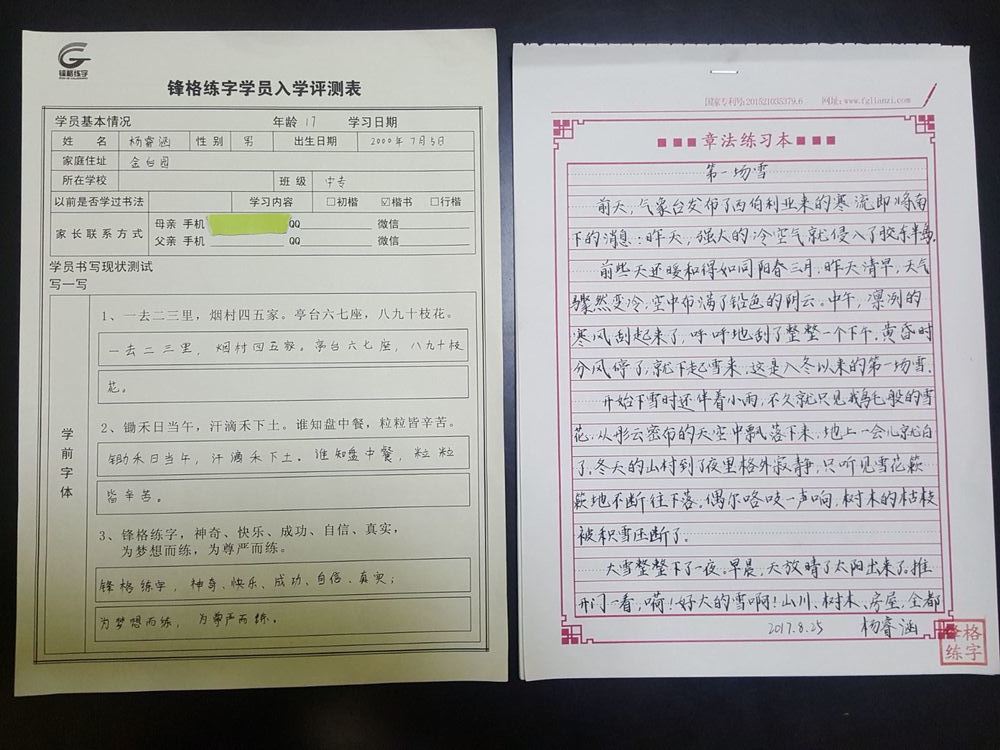 锋格练字
锋格练字学员入学评测表
学员基本情况 年龄 17 学习日期
姓 名 杨睿涵 性 别 男 出生日期 2000年7月5日
家庭住址 金台园
所在学校 班 级 中专
以前是否学过书法 学习内容 □初楷 ☑楷书 □行楷
家长联系方式 母亲 手机 QQ 微信
父亲 手机 QQ 微信
学员书写现状测试
写一写
学前字体
1、一去二三里，烟村四五家。亭台六七座，八九十枝花。
一去二三里，烟村四五家。亭台六七座，八九十枝
花。
2、锄禾日当午，汗滴禾下土。谁知盘中餐，粒粒皆辛苦。
锄禾日当午，汗滴禾下土。谁知盘中餐，粒粒
皆辛苦。
3、锋格练字，神奇、快乐、成功、自信、真实，
为梦想而练，为尊严而练。
锋格练字，神奇、快乐、成功、自信、真实；
为梦想而练，为尊严而练。
国家专利号:201521035379.6 网址:www.fglianzi.com
章法练习本
第一场雪
前天，气象台发布了西伯利亚来的寒流即将南
下的消息：昨天，强大的冷空气就侵入了胶东半岛.
前些天还暖和得如同阳春三月，昨天清早，天气
骤然变冷，空中布满了铅色的阴云。中午，凛冽的
寒风刮起来了，呼呼地刮了整整一个下午，黄昏时
分风停了，就下起雪来，这是入冬以来的第一场雪.
开始下雪时还伴着小雨，不久就只见鹅毛般的雪
花，从彤云密布的天空中飘落下来，地上一会儿就白
了，冬天的山村到了夜里格外寂静，只听见雪花簌
簌地不断往下落，偶尔咯吱一声响，树木的枯枝
被积雪压断了。
大雪整整下了一夜。早晨，天放晴了太阳出来了。推
开门一看，嗬！好大的雪啊！山川、树木、房屋，全都
2017.8.25 杨睿涵
锋格
练字